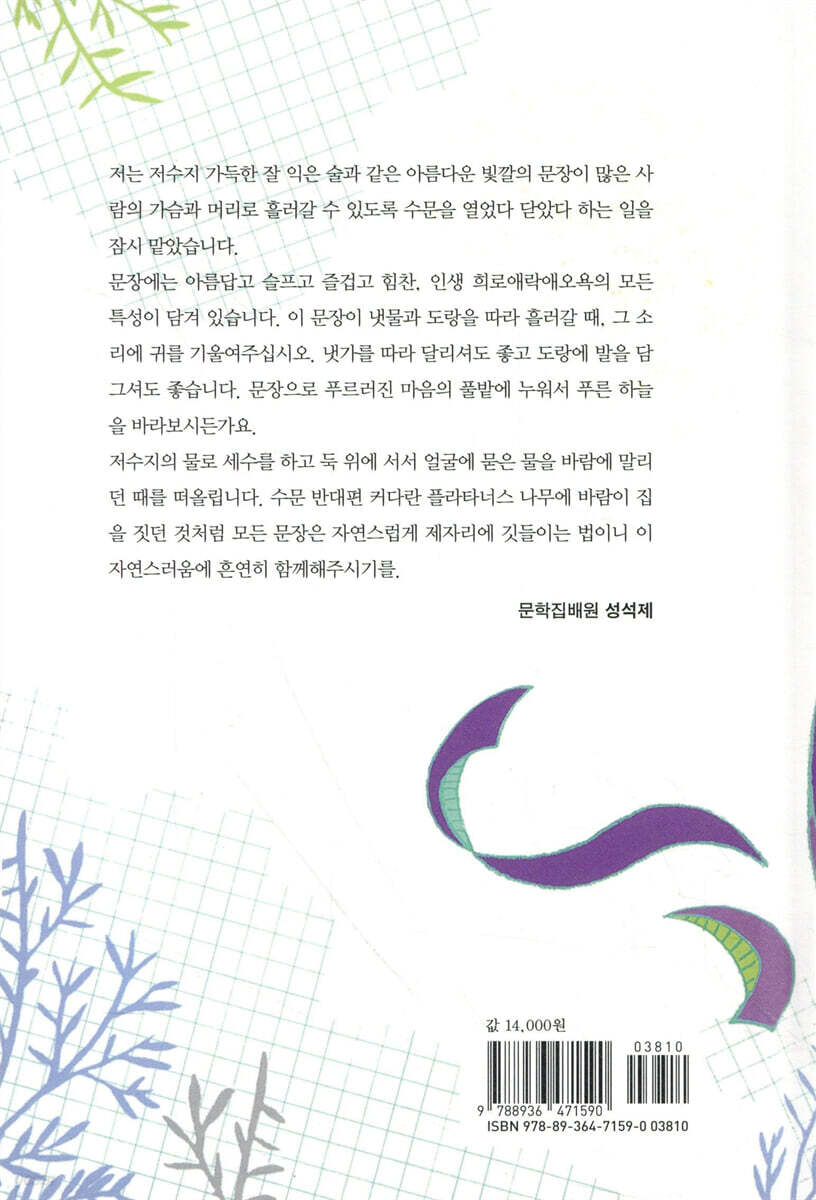 저는 저수지 가득한 잘 익은 술과 같은 아름다운 빛깔의 문장이 많은 사
람의 가슴과 머리로 흘러갈 수 있도록 수문을 열었다 닫았다 하는 일을
잠시 맡았습니다.
문장에는 아름답고 슬프고 즐겁고 힘찬, 인생 희로애락애오욕의 모든
특성이 담겨 있습니다. 이 문장이 냇물과 도랑을 따라 흘러갈 때, 그 소
리에 귀를 기울여주십시오. 냇가를 따라 달리셔도 좋고 도랑에 발을 담
그셔도 좋습니다. 문장으로 푸르러진 마음의 풀밭에 누워서 푸른 하늘
을 바라보시든가요.
저수지의 물로 세수를 하고 둑 위에 서서 얼굴에 묻은 물을 바람에 말리
던 때를 떠올립니다. 수문 반대편 커다란 플라타너스 나무에 바람이 집
을 짓던 것처럼 모든 문장은 자연스럽게 제자리에 깃들이는 법이니 이
자연스러움에 흔연히 함께해주시기를.
문학집배원 성석제
값 14,000원
03810
9 788936 471590
ISBN 978-89-364-7159-0 03810